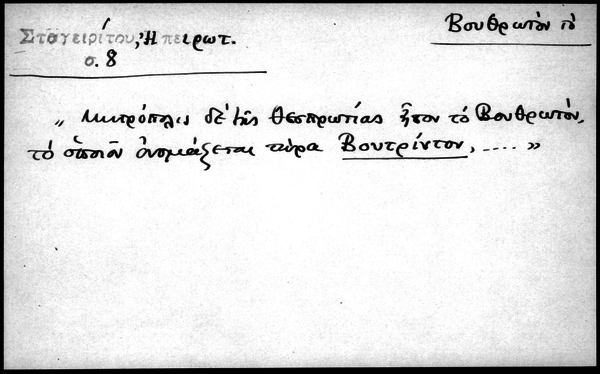 Βουθρωτὸν τὸ
Σταγειρίτου, Ἠπειρωτ.
σ. 8
„ Μητρόπολις δὲ τῆς Θεσπρωτίας ἦτον τὸ Βουθρωτόν,
τὸ ὁποῖον ὀνομάζεται τώρα Βουτρίντον, .... »